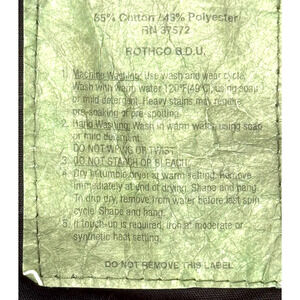 55% Cotton / 45% Polyester
RN 37572
ROTHCO B.D.U.
1. Machine Washing: Use wash and wear cycle.
Wash with warm water 120°F(49°C) using soap
or mild detergent. Heavy stains may require
pre-soaking or pre-spotting.
2. Hand Washing: Wash in warm water, using soap
or mild detergent.
DO NOT WRING OR TWIST
3. DO NOT STARCH OR BLEACH.
4. Dry in tumble dryer at warm setting. Remove
immediately at end of drying. Shape and hang.
To drip dry, remove from water before last spin
cycle! Shape and hang.
5. If touch-up is required, iron at moderate or
synthetic heat setting.
DO NOT REMOVE THIS LABEL